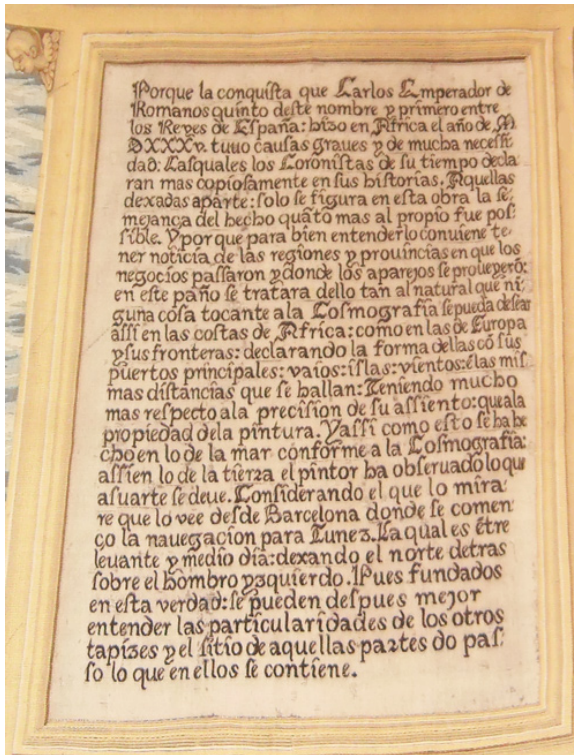 Porque la conquista que Carlos Emperador de
Romanos quinto deste nombre y primero entre
los Reyes de España: hizo en Africa el año de M
DXXXv. tuuo causas graues y de mucha necessi
dad: Lasquales los Coronistas de su tiempo decla
ran mas copiosamente en sus historias. Aquellas
dexadas aparte: solo se figura en esta obra la se
mejança del hecho quãto mas al propio fue pos
sible. Y porque para bien entenderlo conuiene te
ner noticia de las regiones y prouincias en que los
negocios passaron y donde los aparejos se proueyerõ:
en este paño se tratara dello tan al natural que nĩ
guna cosa tocante ala Cosmografia se pueda desear
assi en las costas de Africa: como en las de Europa
y sus fronteras: declarando la forma dellas cõ sus
puertos principales: vaios: islas: vientos: ẽ las mis
mas distancias que se hallan: Teniendo mucho
mas respecto ala precision de su assiento: que ala
propiedad dela pintura. Y assi como esto se ha he
cho en lo de la mar conforme a la Cosmografia:
assi en lo de la tierra el pintor ha obseruado lo que
a su arte se deue. Considerando el que lo mira
re que lo vee desde Barcelona donde se comen
ço la nauegacion para Tunez. La qual es ẽtre
leuante y medio dia: dexando el norte detras
sobre el hombro yzquierdo. Pues fundados
en esta verdad: se pueden despues mejor
entender las particularidades de los otros
tapizes y el sitio de aquellas partes do pas
so lo que en ellos se contiene.